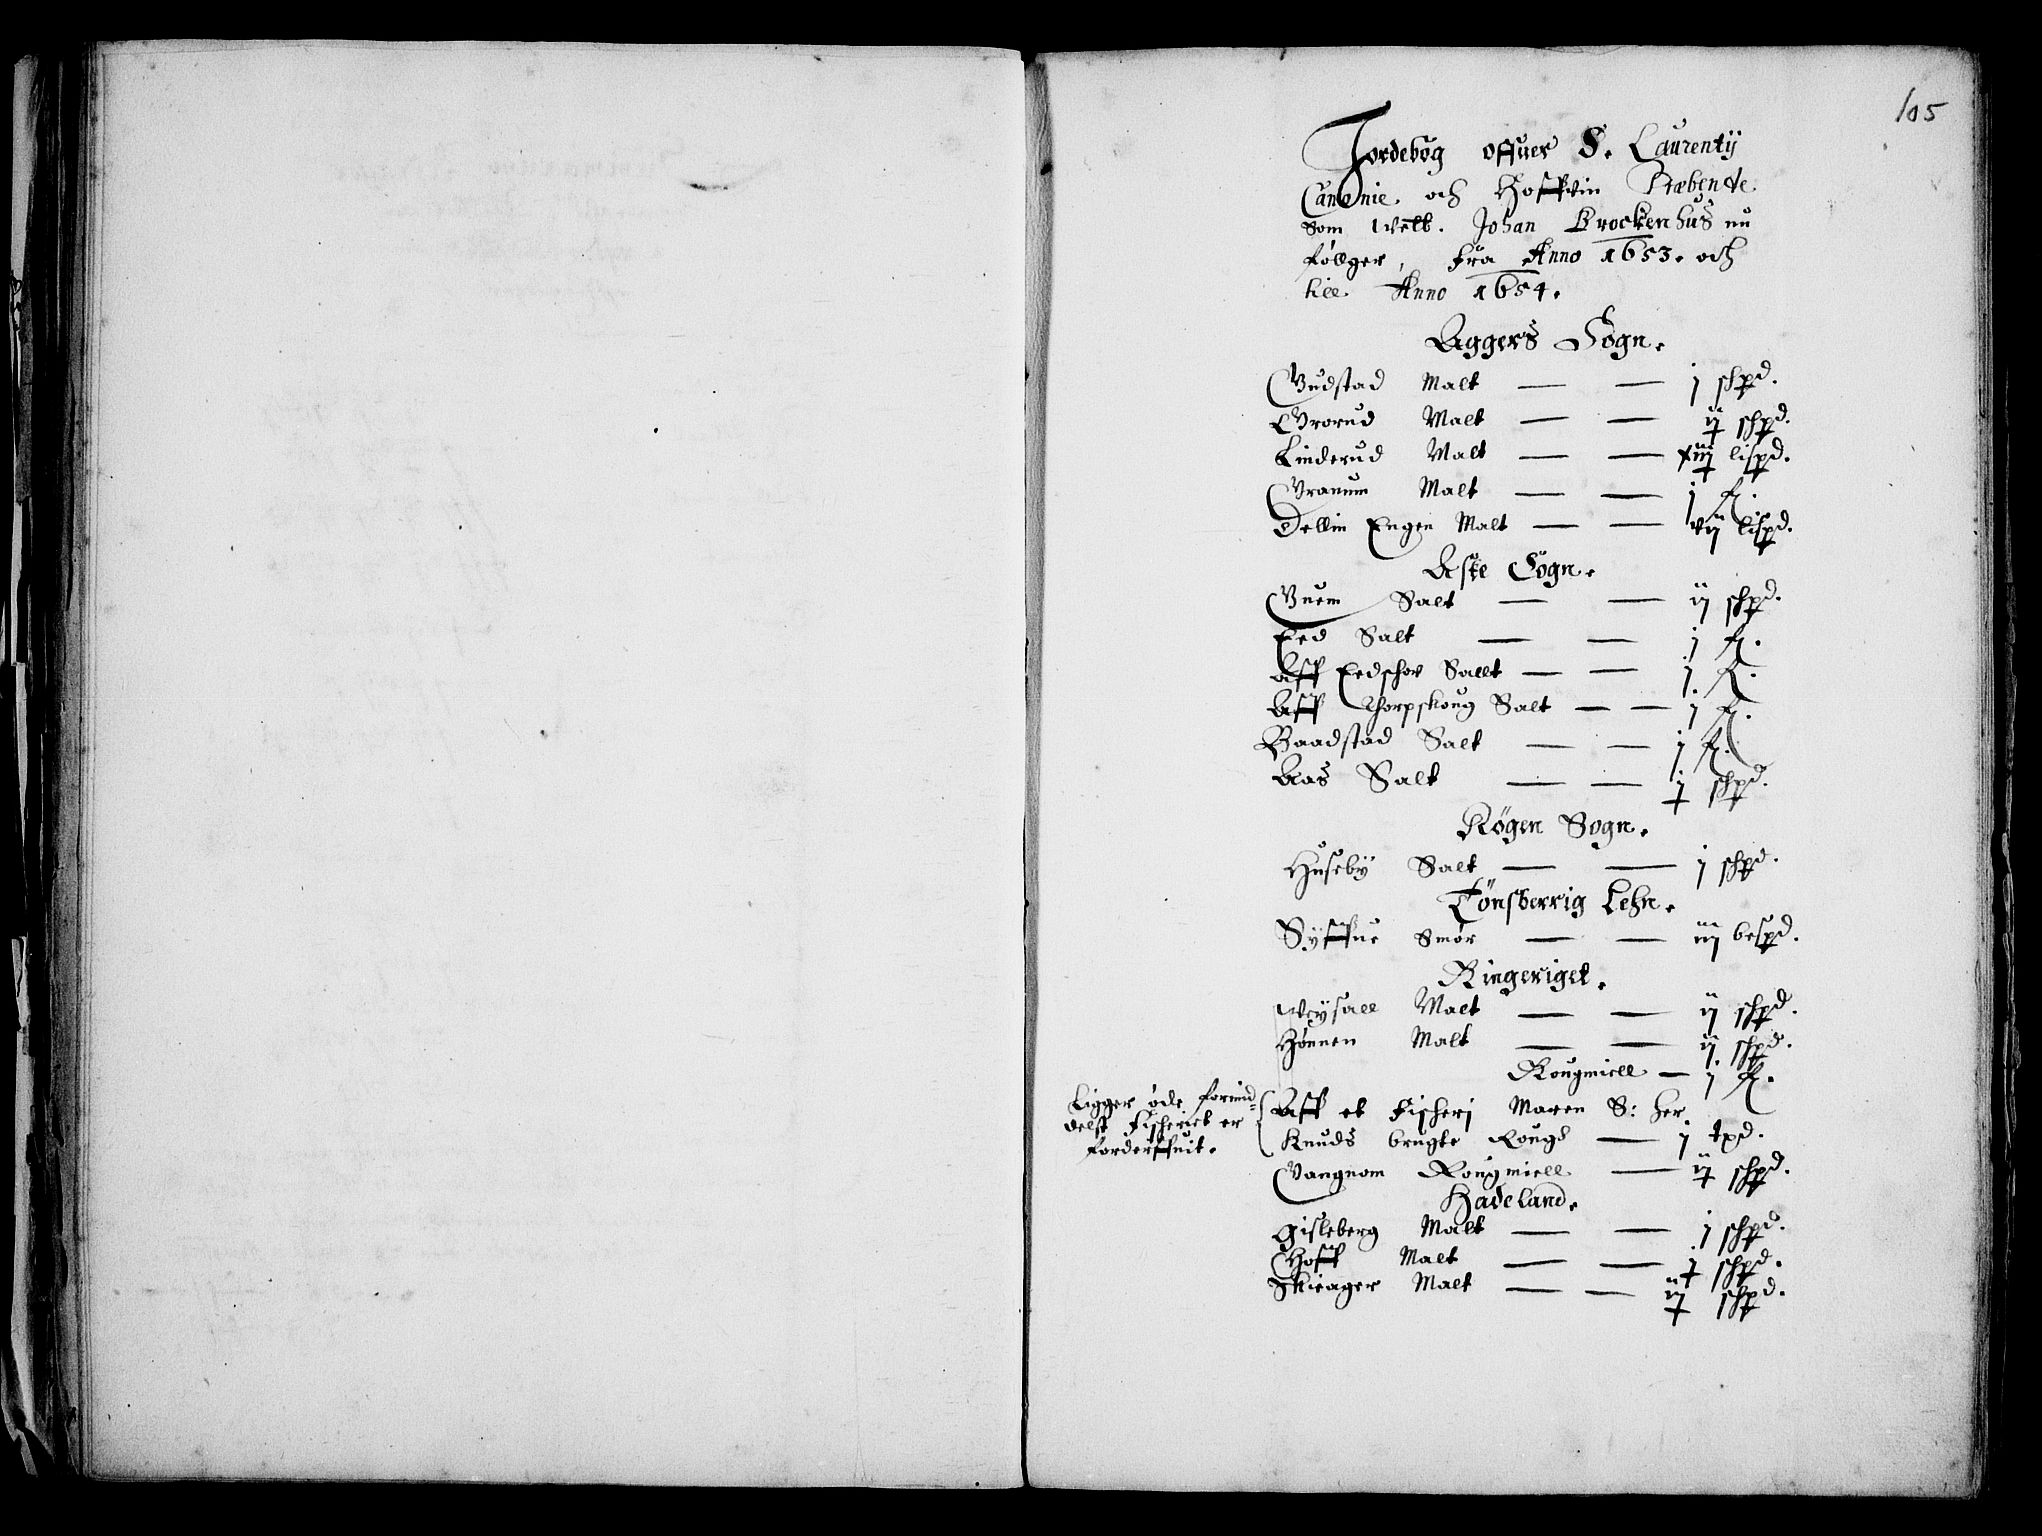 105
Jordebog offuer S. Laurentij
Canonie och Hoffvin Præbende
Som Welb. Johan Brockenhus nu
følger, fra Anno 1653. och
till Anno 1654.
Aggers Sogn.
Vudstad Malt — — j schpd.
Grorud Malt — — ij schpd.
Linderud Malt — — xiij lispd.
Vranum Malt — — j fl.
Dellin Engen Malt — — vij lispd.
Aske Sogn.
Vuem Salt — — ij schpd.
Eed Salt — — j fl.
Aff Eedschov Sallt — — j fl.
Aff Thorpskoug Salt — — j fl.
Baadstad Salt — — j fl.
Aas Salt — — j schpd.
Røgen Sogn.
Huseby Salt — — j schpd.
Tønsberrig Lehn.
Syffue Smør — — iij bespd.
Ringeriget.
Weysall Malt — — ij schpd.
Hønnen Malt — — ij schpd.
Rougmiell — j fl.
Ligger øde formid=
delst Fischeriet er
forderffuit.
Aff et Fischerj Maren S: her
Knuds brugte Rougs — j tpd.
Vangnom Rougmiell — ij schpd.
Hadeland.
Gisleberg Malt — — j schpd.
Hoff Malt — — j schpd.
Skieager Malt — — ij schpd.